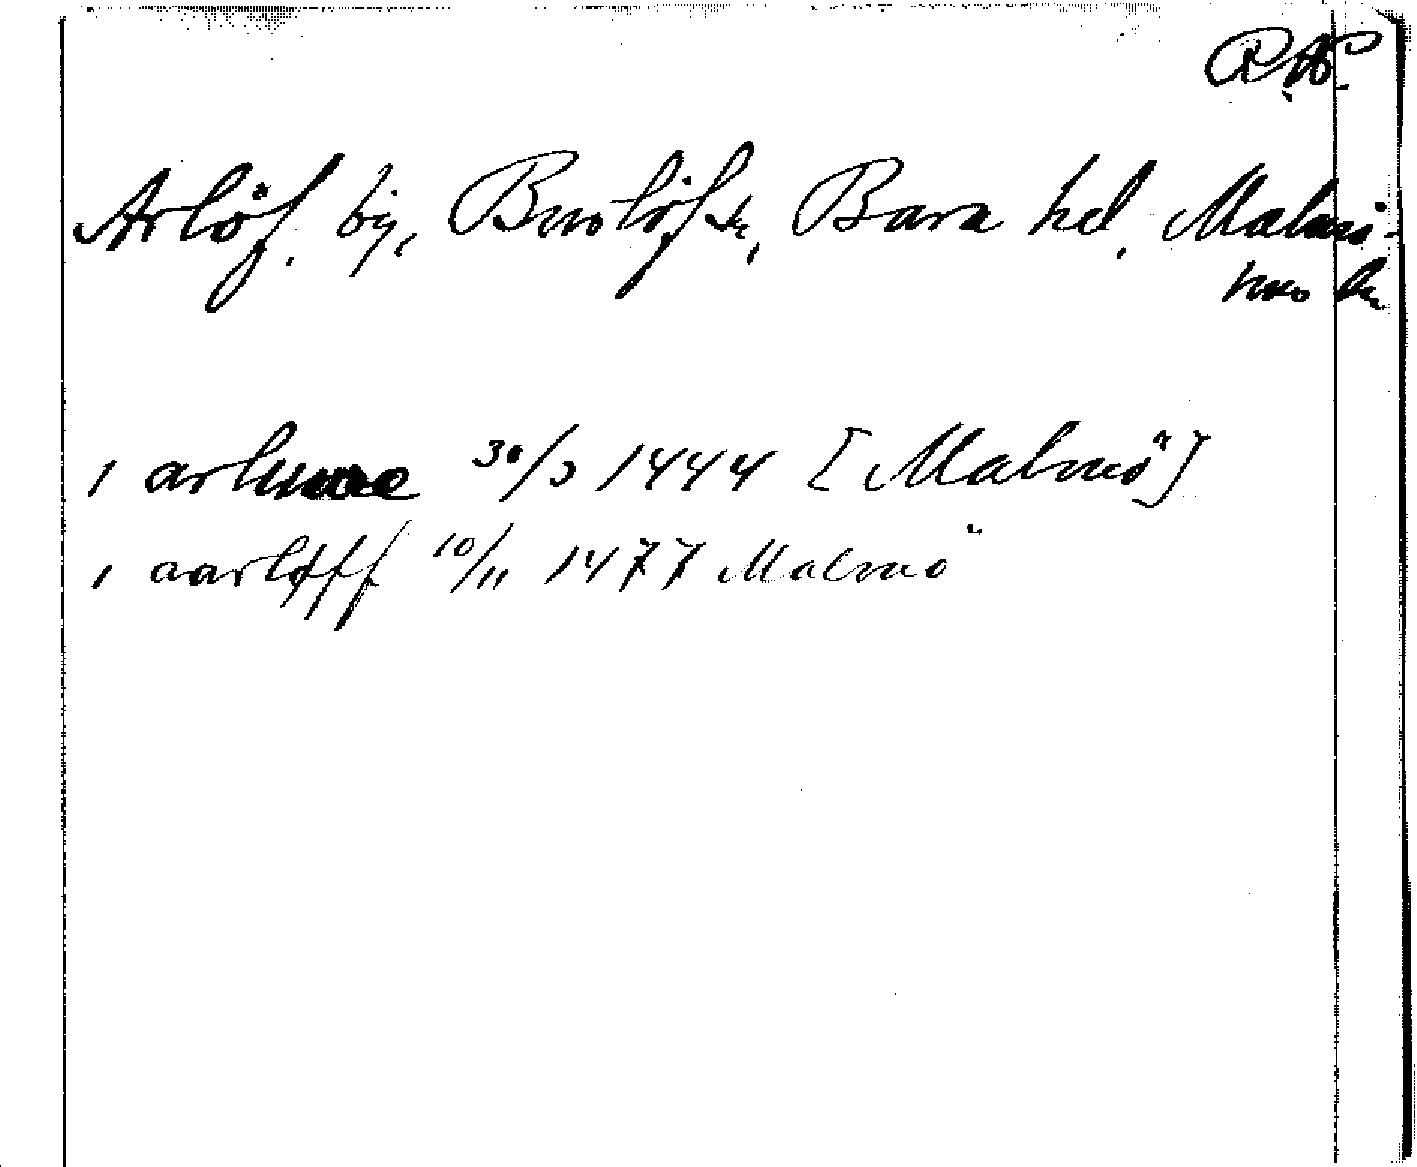 R.A.
Arlöf, by, Burlöf sn, Bara hd, Malmö-
hus ln
1 30/3 1444 [Malmö]
1 aarløff 10/11 1477 Malmö